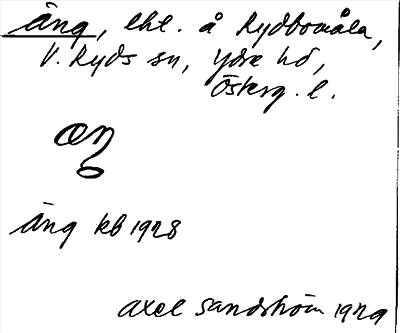 äng, ekl. å Rydbomåla,
V. Ryds sn, Ydre hd,
Österg. l.
äŋ
äng kb 1928
Axel Sandström 1929